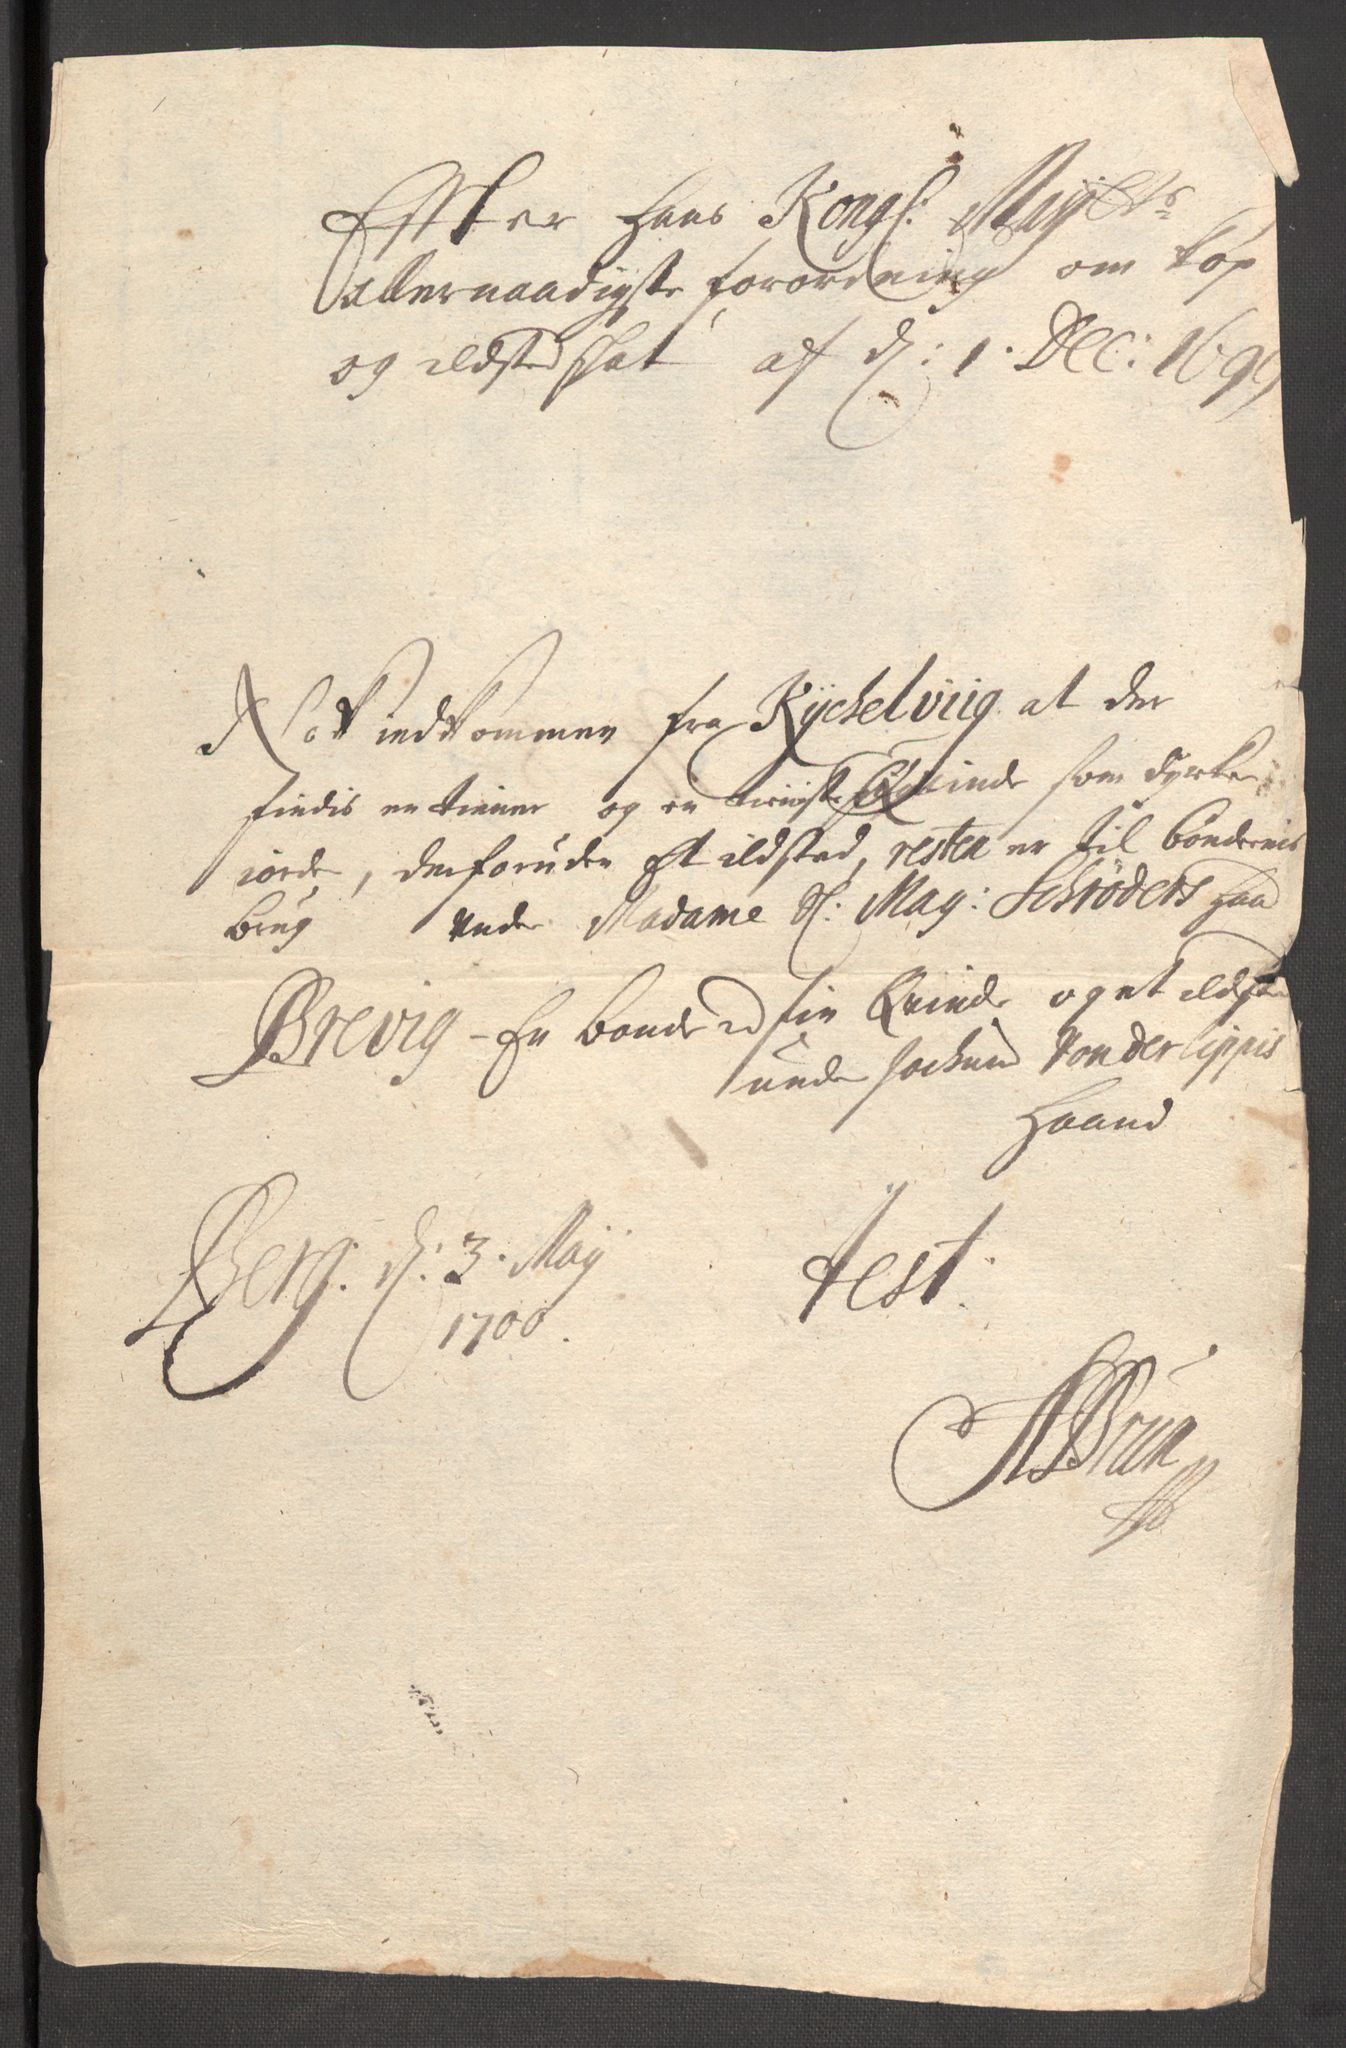 Efter hans Kongl: Mayts
allernaadigste forordning om kop
og ildsted skat af d: 1. Dec: 1699
indkommen fra Kyckelviig at der
findis en tiener og en tieniste Qvinde som dyrker
iorde, desforuden Et ildsted, resten er til bøndernis
brug under Madame Sl: Mag: Schrøders haa
Brevig - En bonde sin Qvinde og et ildsted
under Jochum Vonderlippis
Haand
Berg. d: 3. Maij
1700.
test.
ABrun